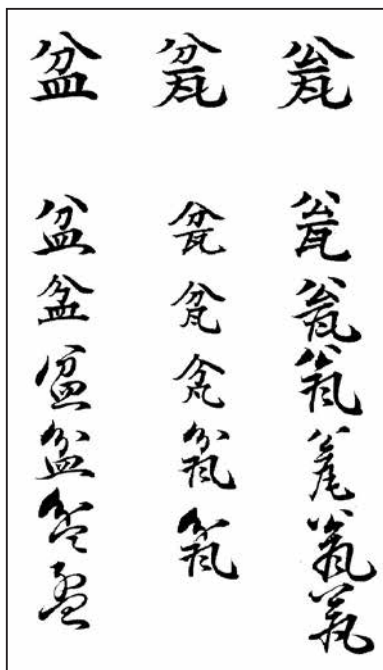 瓮瓮瓮瓮瓮瓮瓮
瓫瓫瓫瓫瓫瓫
盆盆盆盆盆盆盆